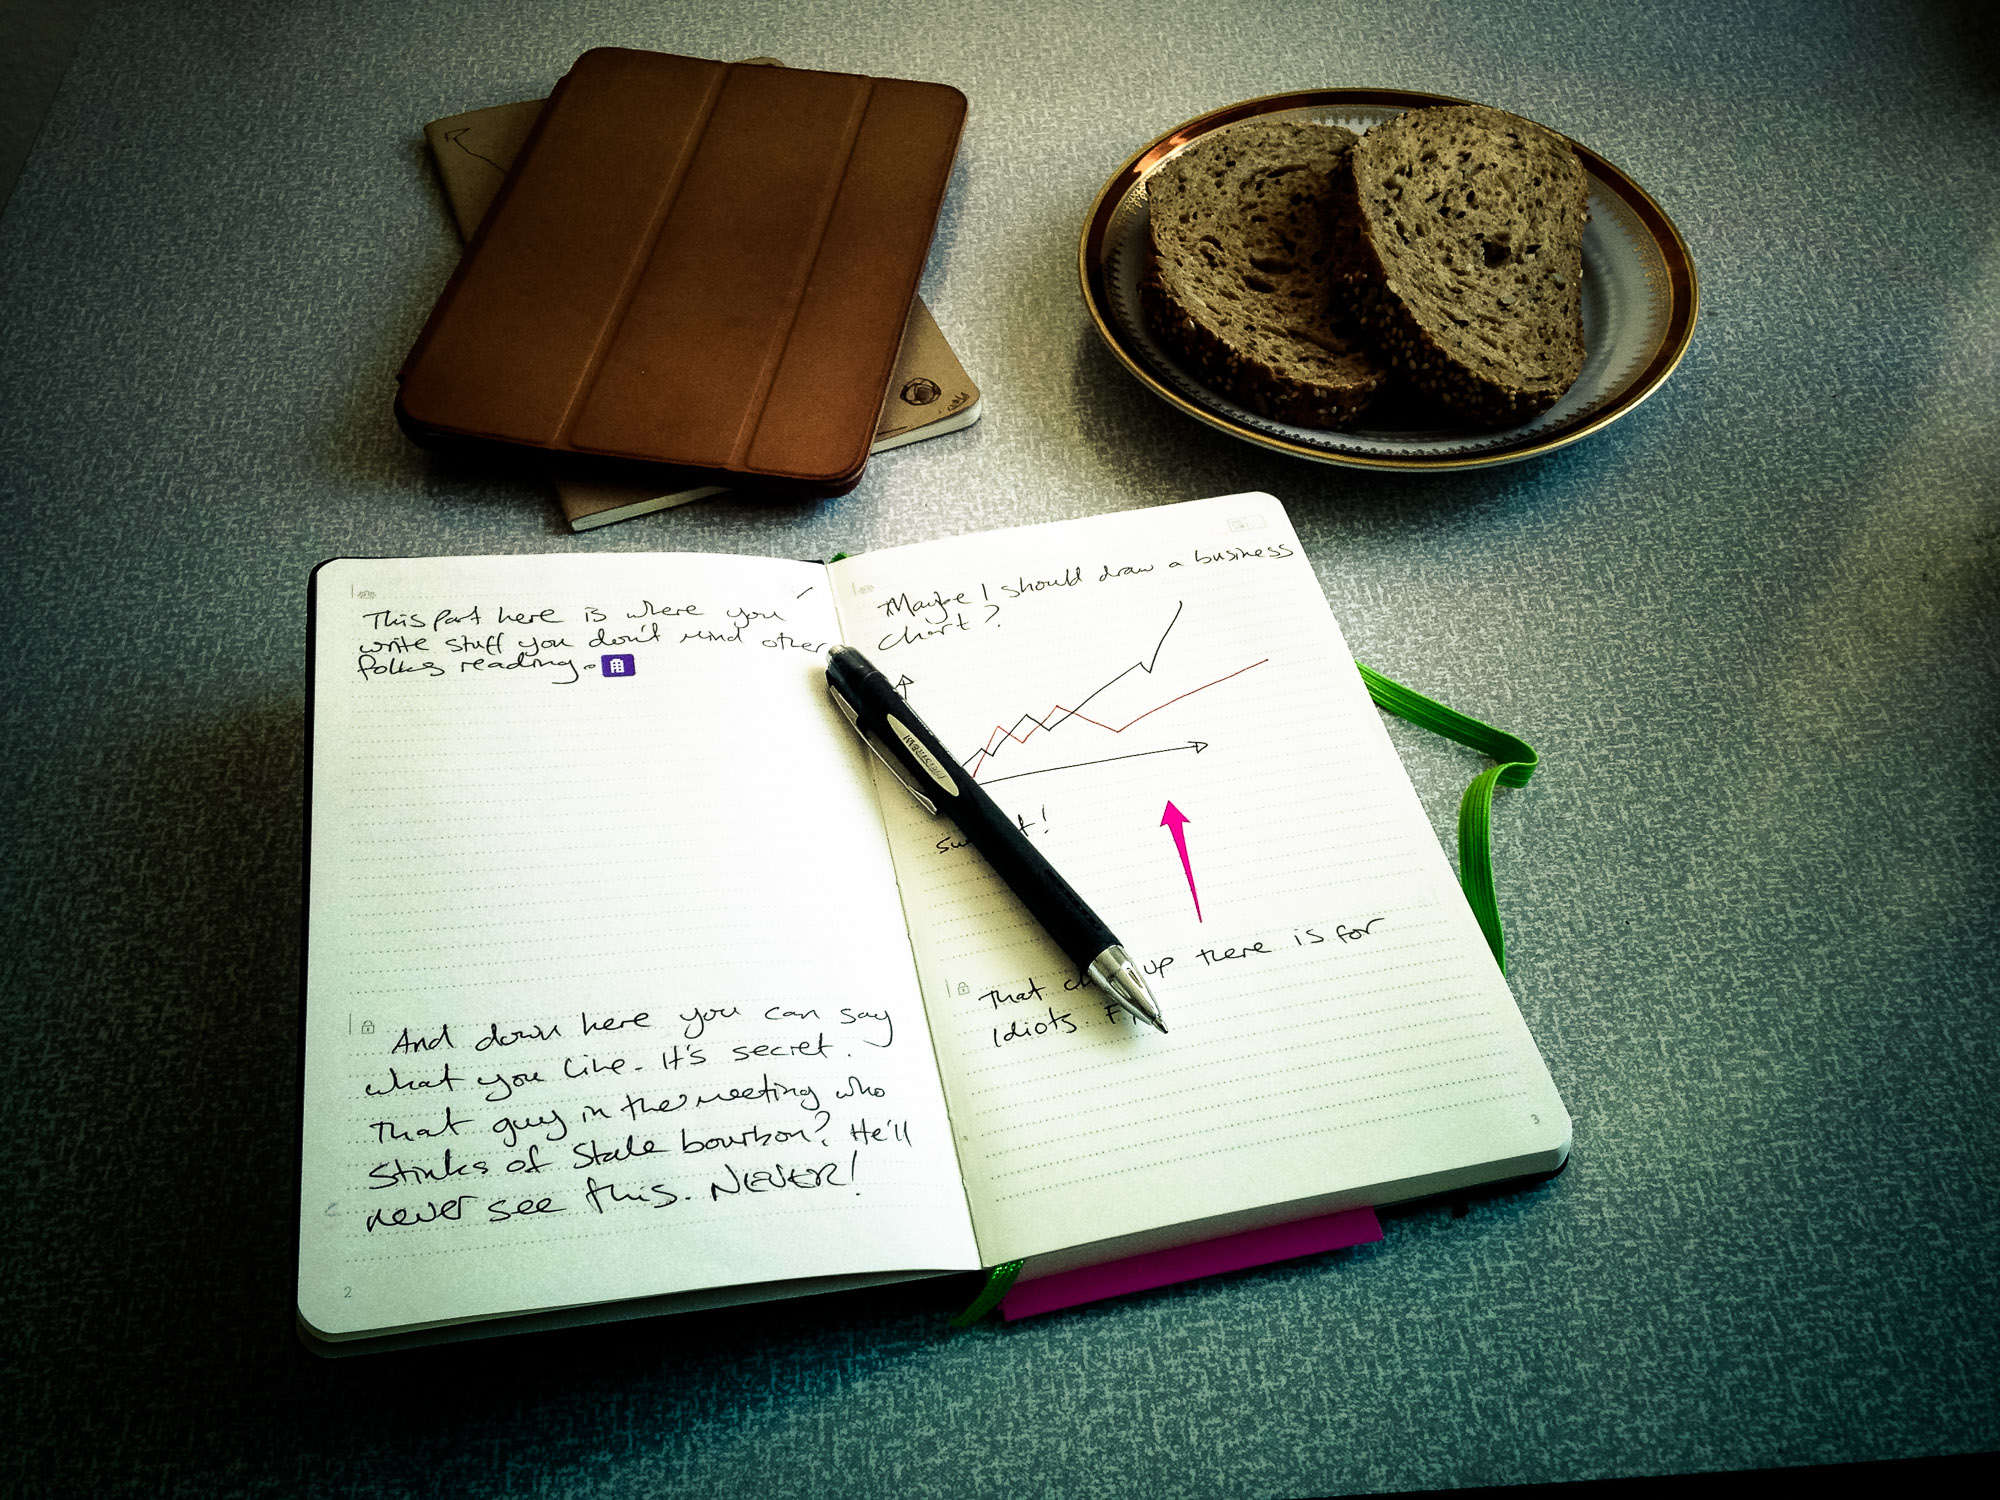 This part here is where you
write stuff you don't mind other
folks reading.
And down here you can say
what you like. It's secret.
That guy in the meeting who
Stinks of Stale bourbon? He'll
never see this. NEVER!
2
Maybe I should draw a business
chart?
That up there is for
Idiots.
3